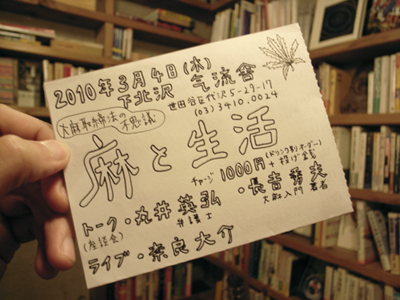 2010年3月4日(木)
下北沢 气流舎
世田谷区代沢5-29-17
(03)3410.0024
大麻取締法の不思議
麻と生活
チャージ 1000円 + 投げ銭
(ドリンク別オーダー)
トーク・丸井英弘 ・長吉秀夫
(座談会) 弁護士 大麻入門 著者
ライブ・奈良大介